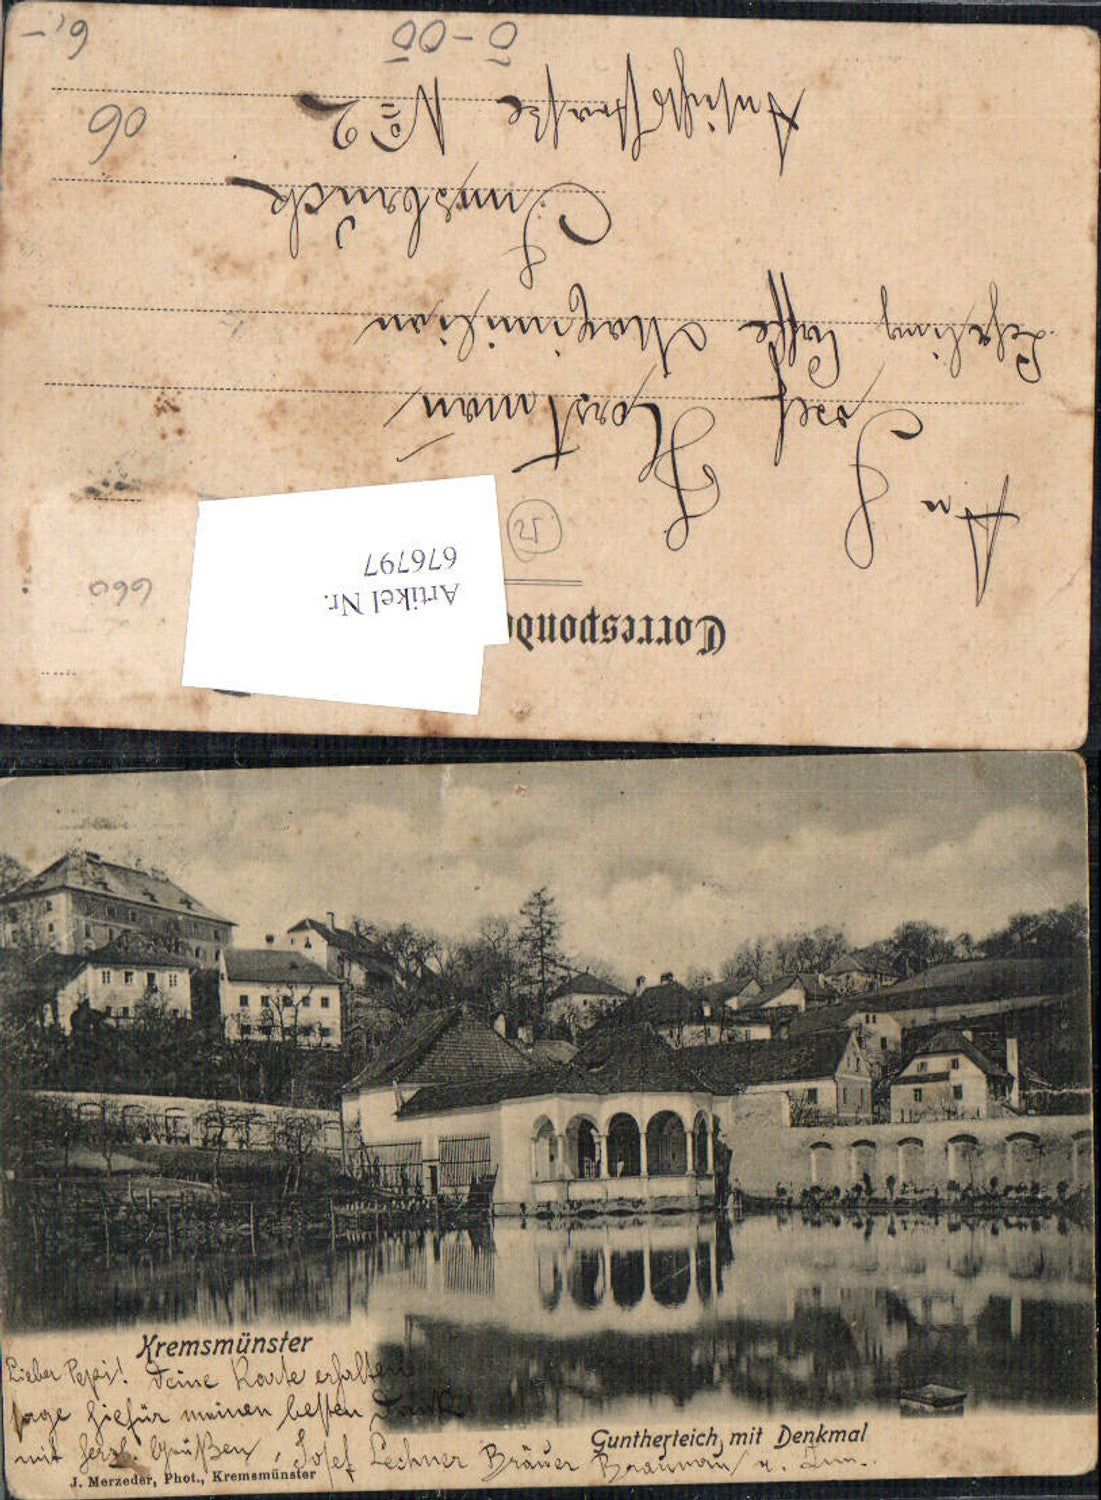 Correspond
Artikel Nr.
676797
25
660
An
Josef Horstmann
Lehrling Caffe Maximilian
Innsbruck
Anichstrasse No 2
06
Kremsmünster
Lieber Pepi! Deine Karte erhalten
sage hiefür meinen besten Dank
mit herzl. Grüßen, Josef Lechner Bräuer Braunau a. Inn.
Guntherteich mit Denkmal
J. Merzeder, Phot., Kremsmünster